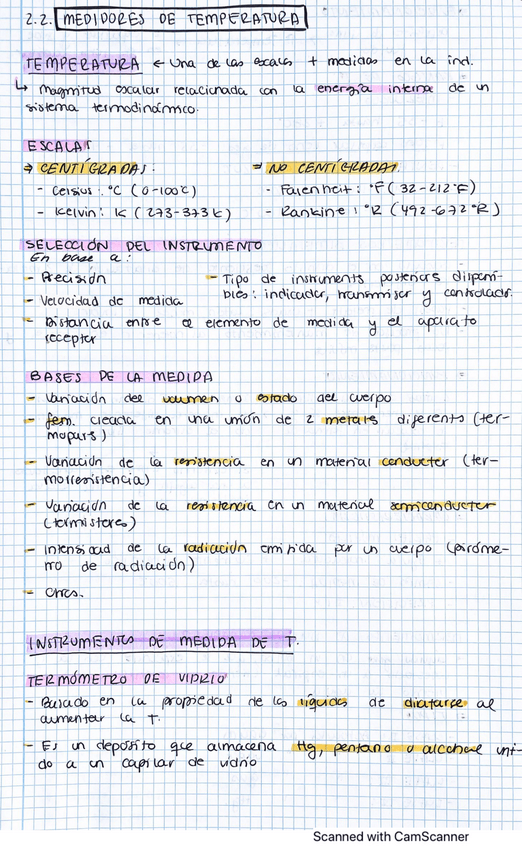 2.2. MEDIDORES DE TEMPERATURA
TEMPERATURA ← Una de las escalas + medidas en la ind.
↳ Magnitud escalar relacionada con la energía interna de un
sistema termodinámico.
ESCALAS
⇒ CENTÍGRADAS.
- Celsius: °C (0-100°C)
- Kelvin: K (273-373 K)
⇒ NO CENTÍGRADAS.
- Farenheit: °F (32-212°F)
- Rankine: °R (492-672°R)
SELECCIÓN DEL INSTRUMENTO
En base a:
- Precisión
- Velocidad de medida
- Distancia entre el elemento de medida y el aparato
receptor
- Tipo de instruments posteriors disponi-
bles: indicador, transmisor y controlador.
BASES DE LA MEDIDA
- Variación del volumen o estado del cuerpo
- fem. creada en una unión de 2 metals diferents (ter-
mopars)
- Variación de la resistencia en un material conductor (ter-
morresistencia)
- Variación de la resistencia en un material semiconductor
(termistores)
- Intensidad de la radiación emitida por un cuerpo (piróme-
tro de radiación)
- Otros.
INSTRUMENTOS DE MEDIDA DE T.
TERMÓMETRO DE VIDRIO
- Basado en la propiedad de los líquidos de dilatarse al
aumentar la T.
- Es un depósito que almacena Hg, pentano o alcohol uni-
do a un capilar de vidrio
Scanned with CamScanner